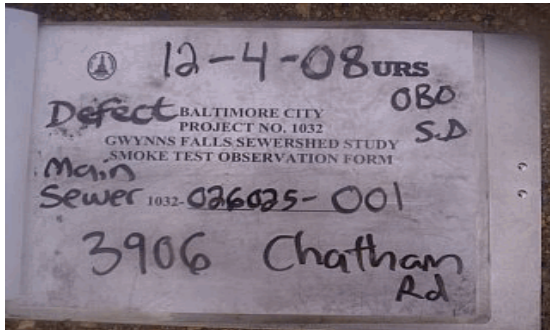 12-4-08 URS
OBO
Defect BALTIMORE CITY
PROJECT NO. 1032 S.D
GWYNNS FALLS SEWERSHED STUDY
SMOKE TEST OBSERVATION FORM
Main
Sewer 1032-026025-001
3906 Chatham
Rd